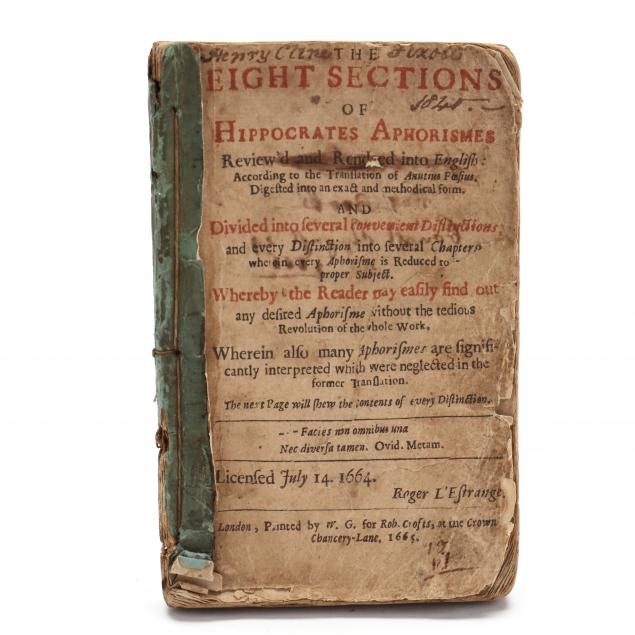 Henry Cline
THE
EIGHT SECTIONS
OF
HIPPOCRATES APHORISMES
Review'd and Rendred into Engliſh:
According to the Tranſlation of Anutius Fœſius.
Digeſted into an exact and methodical form.
AND
Divided into ſeveral convenient Diſtinctions,
and every Diſtinction into ſeveral Chapters
wherein every Aphoriſme is Reduced to -
proper Subject.
Whereby the Reader may eaſily find out
any deſired Aphoriſme without the tedious
Revolution of the whole Work,
Wherein alſo many Aphoriſmes are ſignifi-
cantly interpreted which were neglected in the
former Tranſlation.
The next Page will ſhew the contents of every Diſtinction.
--- Facies non omnibus una
Nec diverſa tamen. Ovid. Metam.
Licenſed July 14. 1664.
Roger L'Eſtrange.
London, Printed by W. G. for Rob. Crofts, at the Crown
Chancery-Lane, 1665.